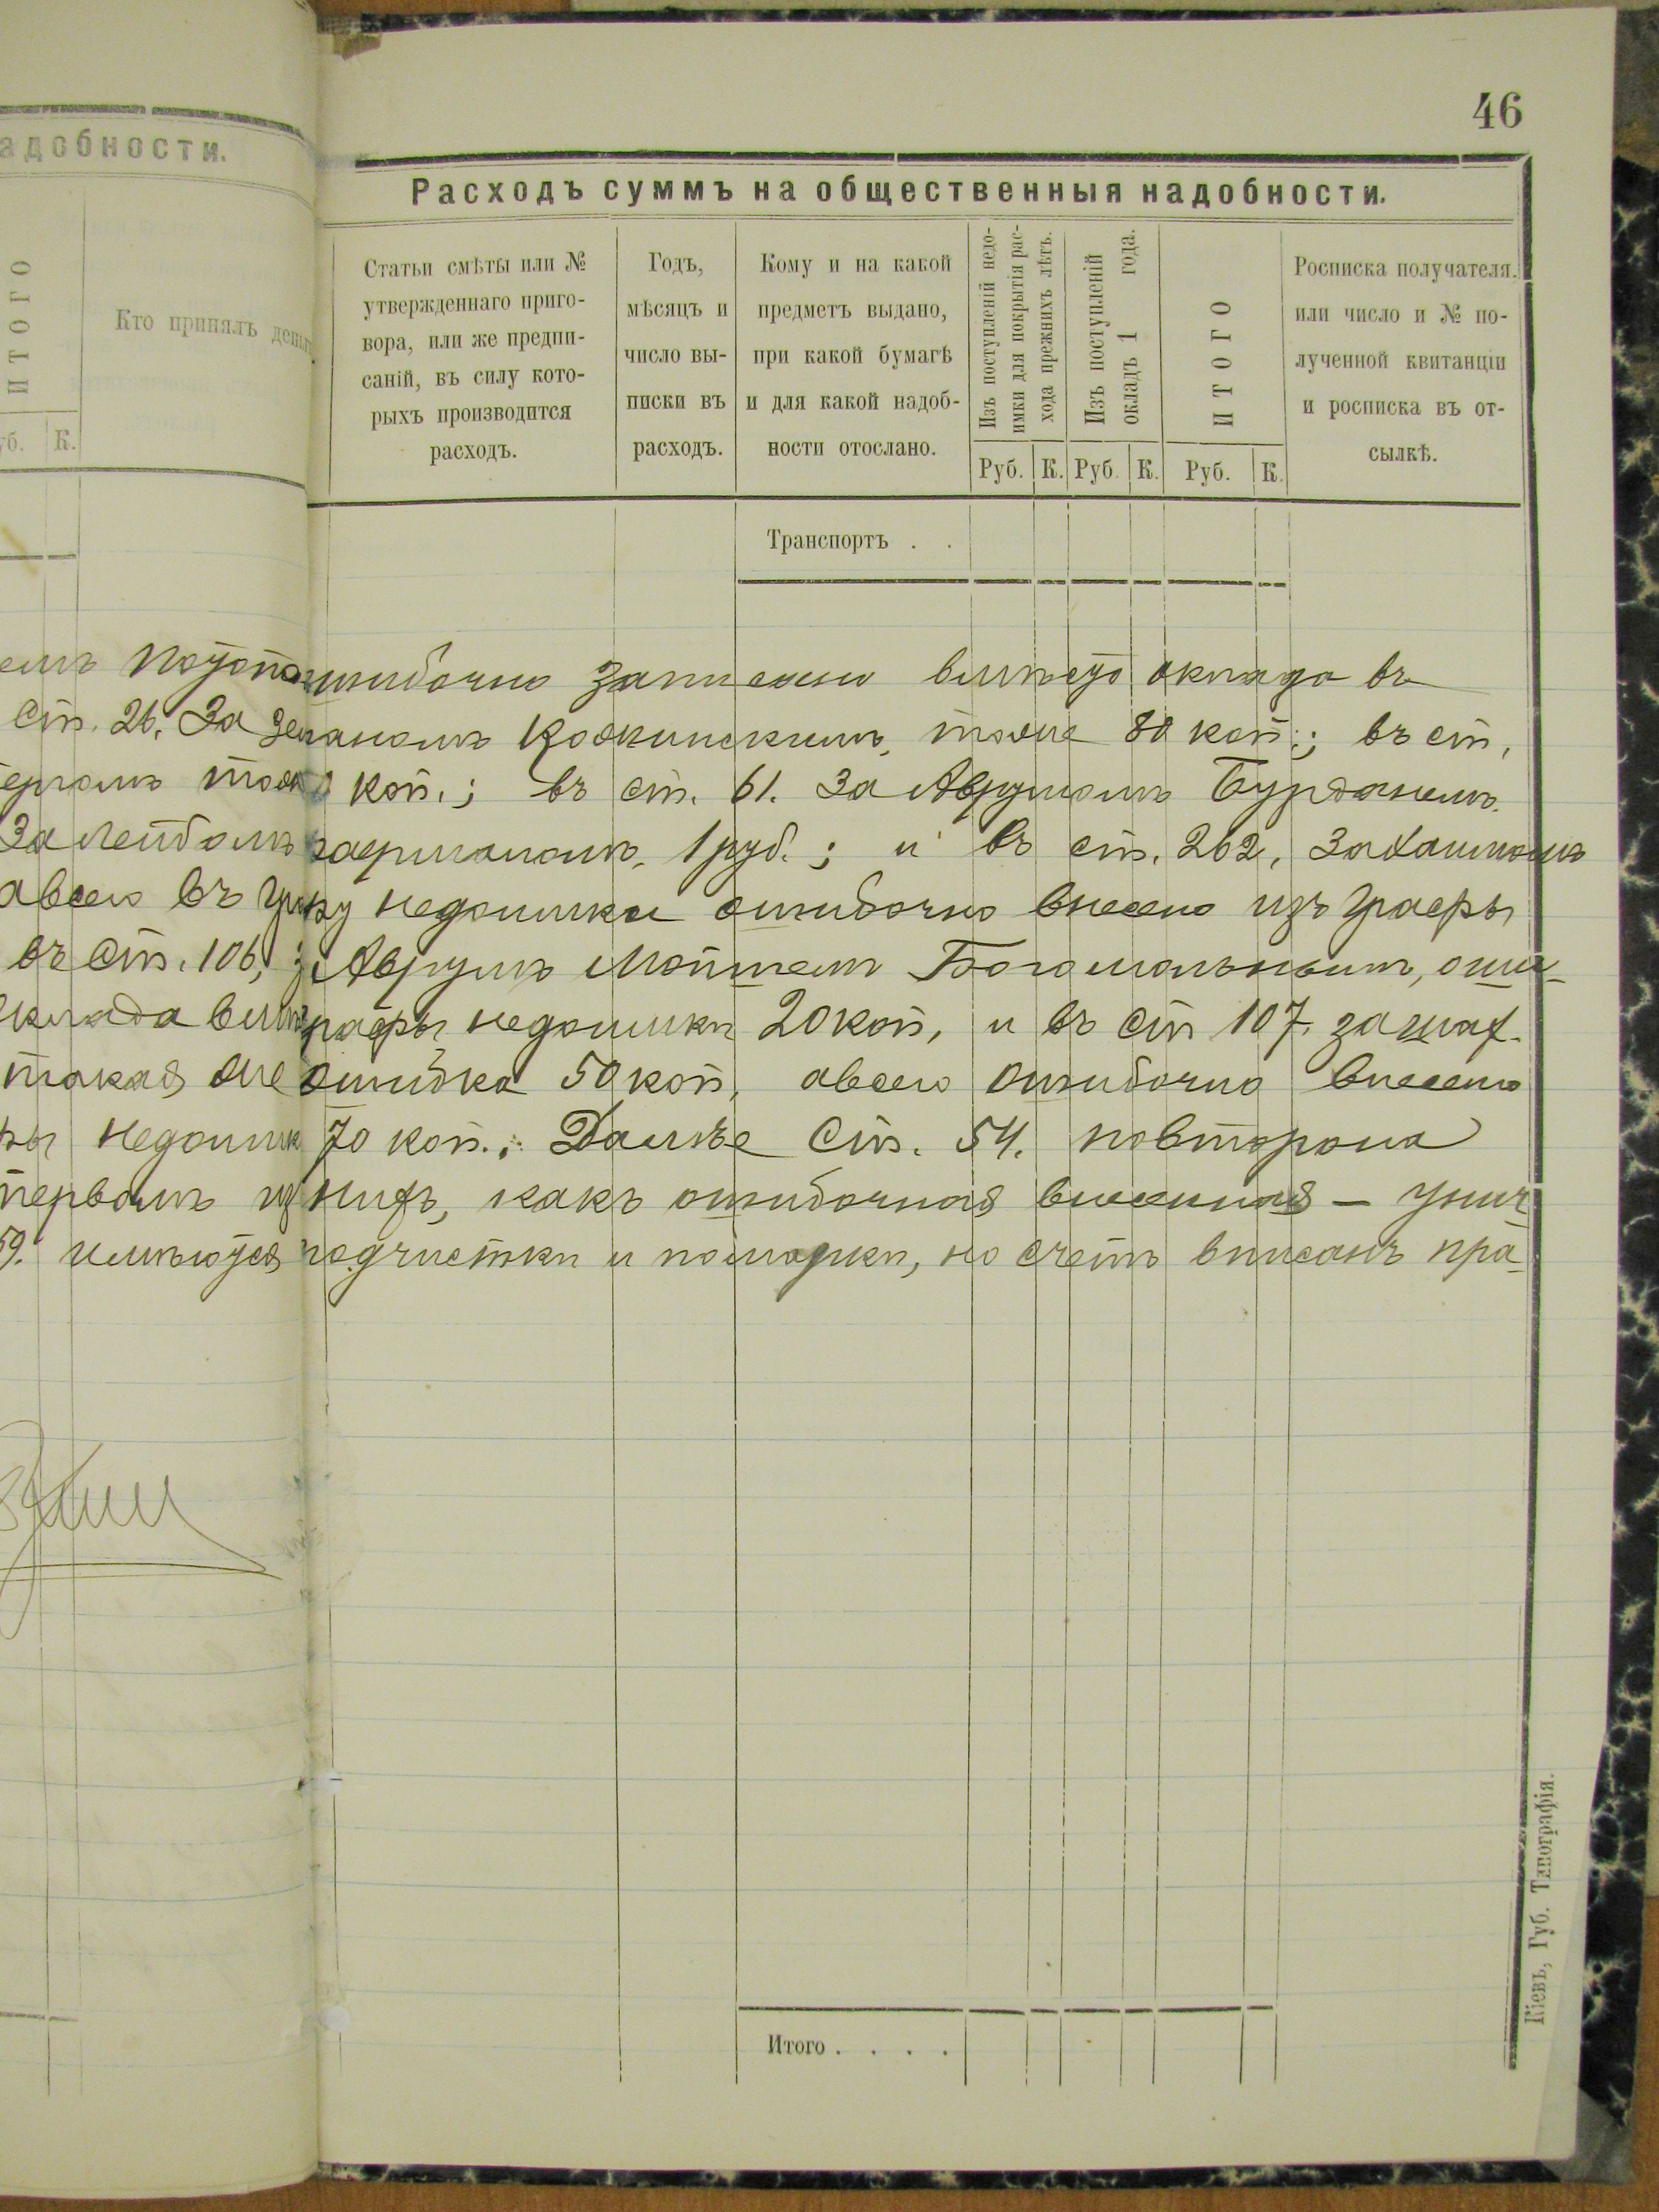 46
адобности.
Расходъ суммъ на общественныя надобности.
ИТОГО
Кто принялъ деньг
уб. К.
Статьи смѣты или №
утвержденнаго приго-
вора, или же предпи-
саній, въ силу кото-
рыхъ производится
расходъ.
Годъ,
мѣсяцъ и
число вы-
писки въ
расходъ.
Кому и на какой
предметъ выдано,
при какой бумагѣ
и для какой надоб-
ности отослано.
Изъ поступленій недо-
имки для покрытія рас-
хода прежнихъ лѣтъ.
Изъ поступленій
окладъ 1 года.
ИТОГО
Росписка получателя,
или число и № по-
лученной квитанціи
и росписка въ от-
сылкѣ.
Руб. К. Руб. К. Руб. К.
Транспортъ . .
шибочно записано вмѣсто оклада въ
Ст. 26. За коп.; въ ст.
коп.; въ ст. 61. За Аврумомъ
За Лейбомъ 1 руб.; и въ ст. 262,
авсего въ недоимки ошибочно внесено изъ графы
въ ст. 106, Аврумъ Мойшемъ Богомольнымъ, оши-
клада недоимки 20 коп, и въ ст 107.
такая же ошибка 50 коп, авсего ошибочно внесено
недоимк 70 коп.; Далѣе Ст. 54.
первомъ из нихъ, какъ ошибочная внесенная — унич
59. имѣются подчистки и помарки, но счетъ вписанъ пра-
Итого . . . .
Кіевъ, Губ. Типографія.